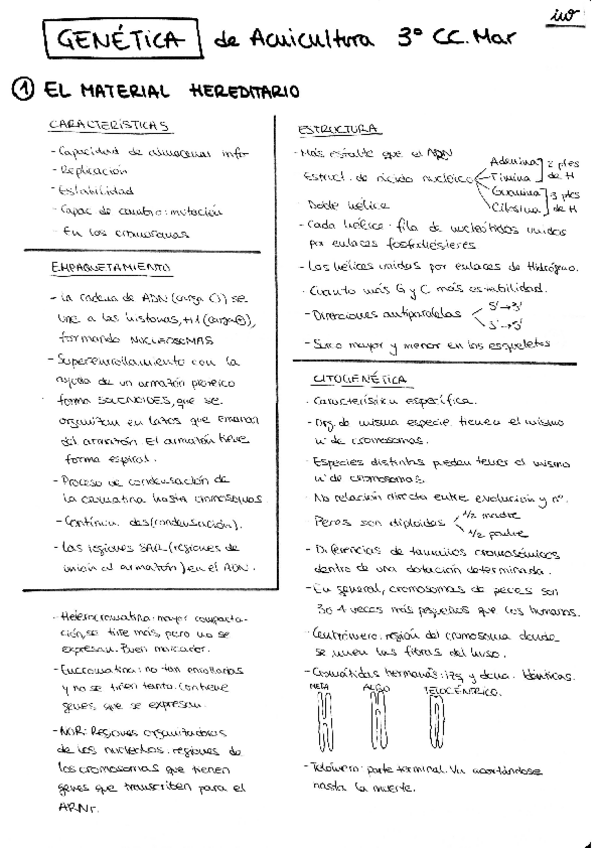 iw
GENÉTICA de Acuicultura 3º CC. Mar
① EL MATERIAL HEREDITARIO
CARACTERÍSTICAS
- Capacidad de almacenar infr
- Replicación
- Estabilidad
- Capac de cambio: mutación
- En los cromosomas
EMPAQUETAMIENTO
- La cadena de ADN (carga ⊖) se
une a las histonas, H1 (carga ⊕),
formando NUCLEOSOMAS
- Superenrollamiento con la
ayuda de un armazón proteico
forma SOLENOIDES, que se
organizan en lazos que emanan
del armazón. El armazón tiene
forma espiral.
- Proceso de condensación de
la cromatina hasta cromosomas
- Continua des(condensación).
- Las regiones SAR (regiones de
unión al armazón) en el ADN.
· Heterocromatina: mayor compacta-
ción, se tiñe más, pero no se
expresan. Buen marcador.
- Eucromatina: no tan enrolladas
y no se tiñen tanto. Contiene
genes que se expresan.
- NOR: Regiones organizadoras
de los nucleolos. regiones de
los cromosomas que tienen
genes que transcriben para el
ARNr.
ESTRUCTURA
- Más estable que el ARN
Estruct. de ácido nucleico
Adenina
Timina
2 ptes
de H
Guanina
Citosina
3 ptes
de H
- Doble hélice
- Cada hélice: fila de nucleótidos unidos
por enlaces fosfodiésteres
- Las hélices unidas por enlaces de Hidrógeno.
· Cuanto más G y C más estabilidad.
- Direcciones antiparalelas
5'→3'
3'→5'
- Surco mayor y menor en los esqueletos
CITOGENÉTICA
· Característica específica.
- Org. de misma especie tienen el mismo
nº de cromosomas.
· Especies distintas pueden tener el mismo
nº de cromosomas.
· No relación directa entre evolución y nº.
· Peces son diploides
1/2 madre
1/2 padre
- Diferencias de tamaños cromosómicos
dentro de una dotación determinada.
- En general, cromosomas de peces son
3 o 4 veces más pequeños que los humanos.
· Centrómero: región del cromosoma donde
se unen las fibras del huso.
- Cromátidas hermanas: izq y dcha. Idénticas.
META ACRO TELOCÉNTRICO.
- Telómero: parte terminal. Va acortándose
hasta la muerte.